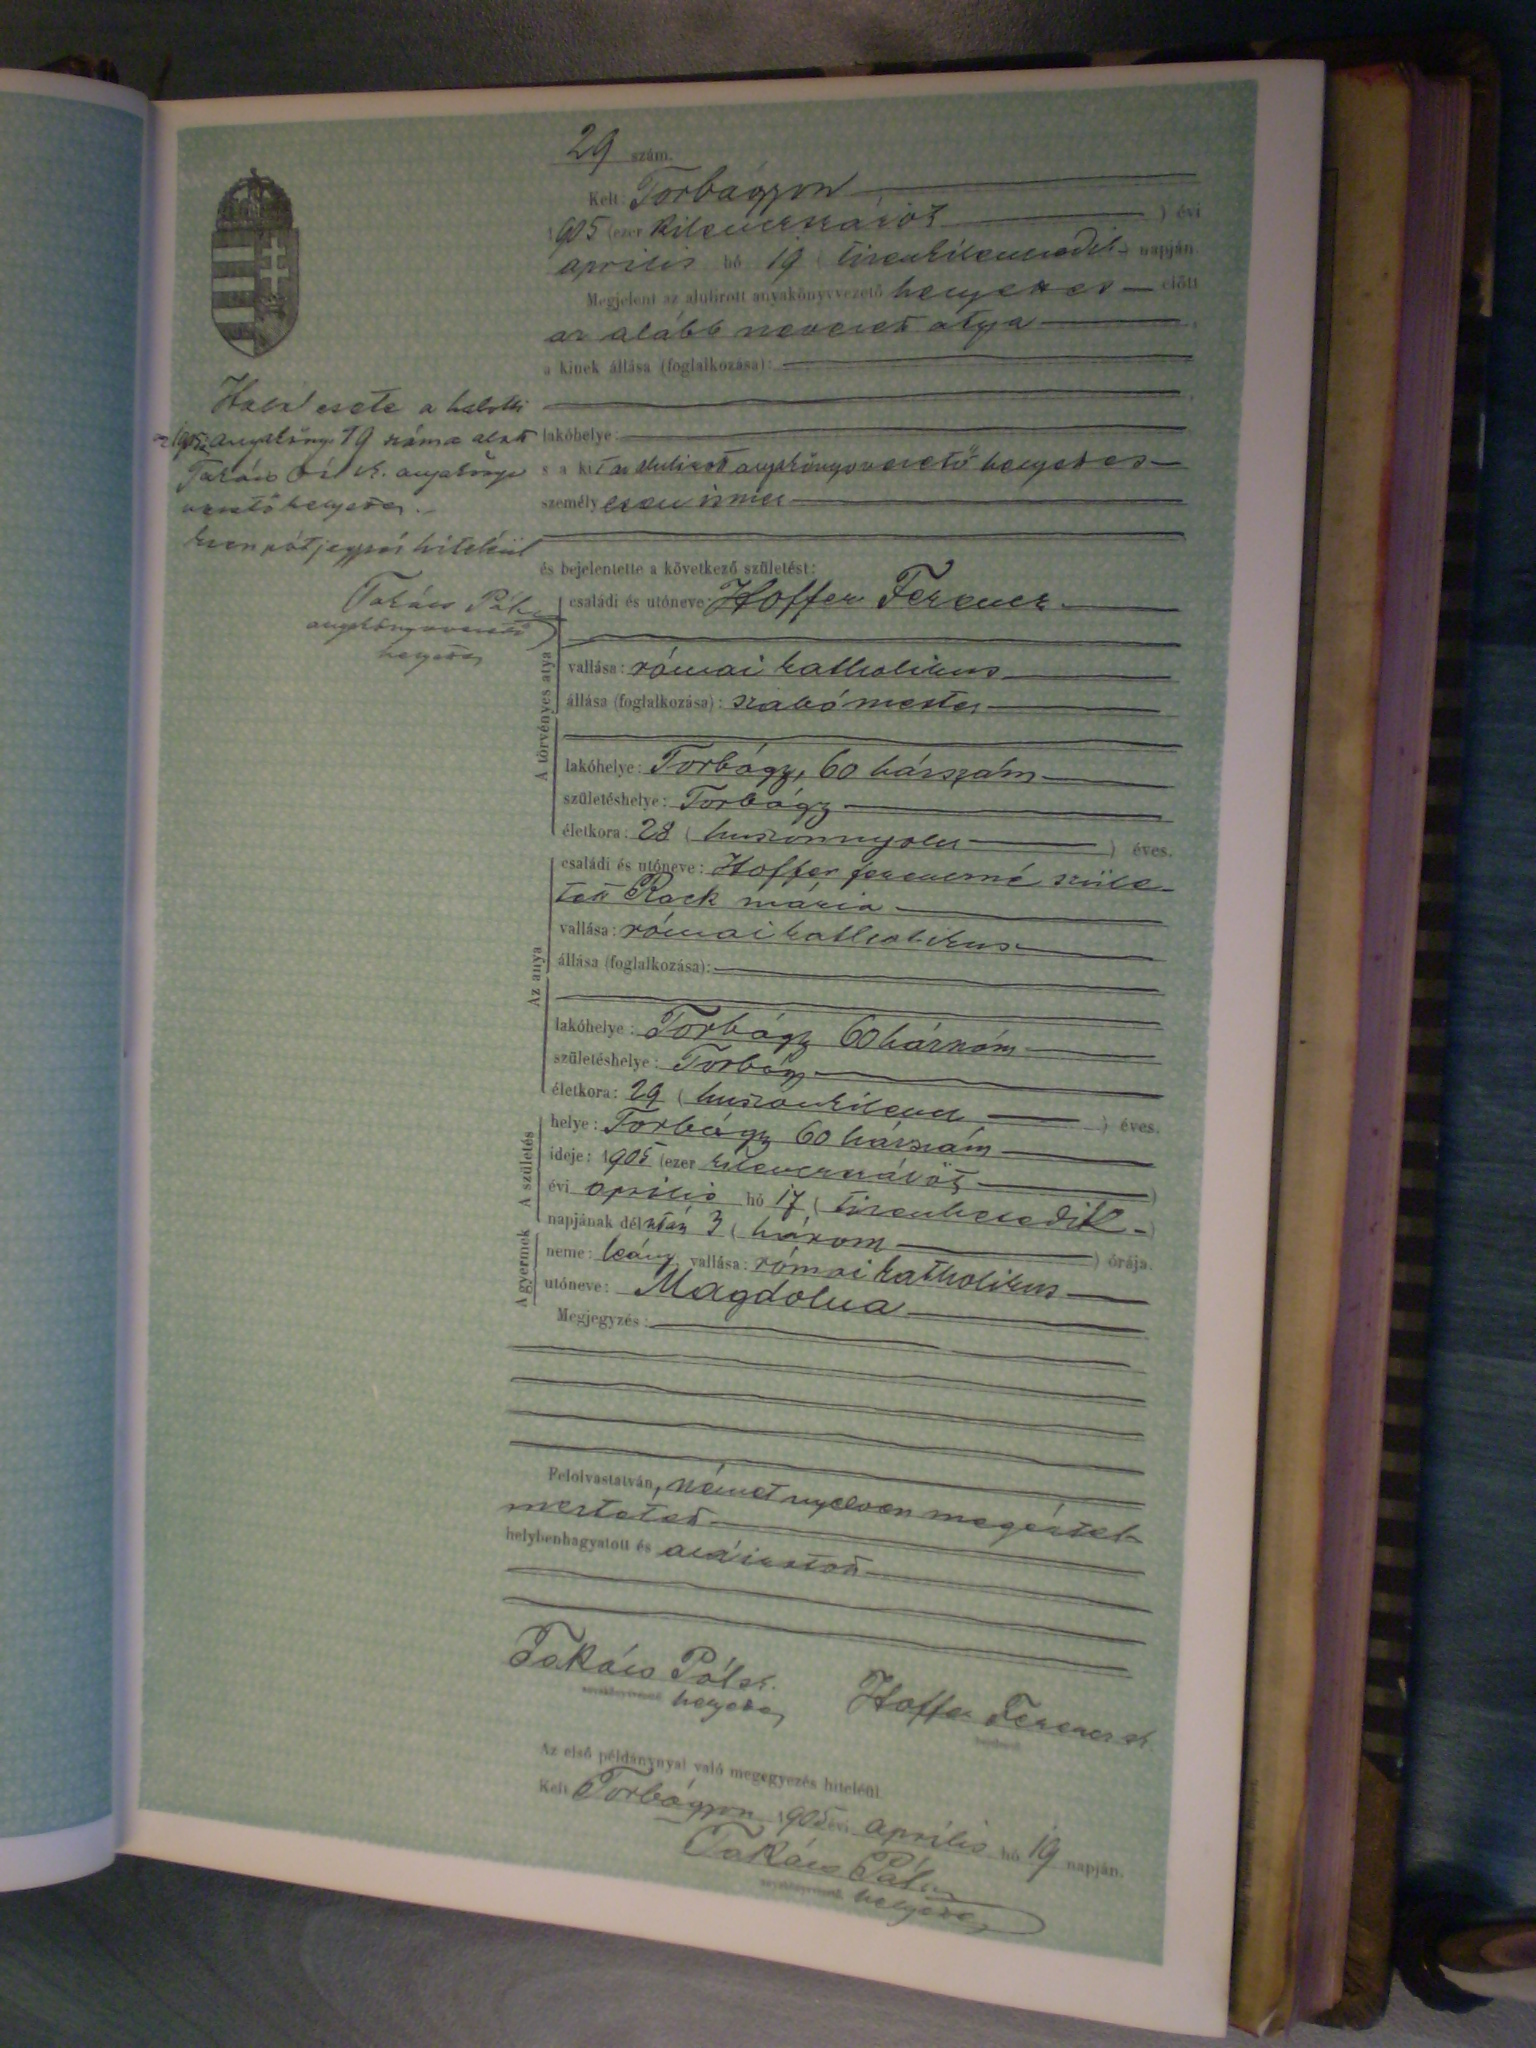 29 szám.
Kelt: Torbágyon
1905 (ezer kilencszázöt ) évi
április hó 19 ( tizenkilencedik ) napján
Megjelent az alulirott anyakönyvvezető helyettes előtt
az alább nevezett atya
a kinek állása (foglalkozása):
Halál esete a halotti
1905 anyakönyv 19 száma alatt
lakóhelye:
Takács Pál s. k. anyakönyv
s a kit az alulirott anyakönyvvezető helyettes
vezető helyettes.
személyesen ismer
ezen utójegyzés hiteléül
és bejelentette a következő születést:
Takács Pál
anyakönyvvezető
helyettes
A törvényes atya
családi és utóneve: Hoffer Ferencz
vallása: római katholikus
állása (foglalkozása): szabómester
lakóhelye: Torbágy, 60 házszám
születéshelye: Torbágy
életkora: 28 ( huszonnyolcz ) éves.
Az anya
családi és utóneve: Hoffer Ferenczné szüle-
tett Rack Mária
vallása: római katholikus
állása (foglalkozása):
lakóhelye: Torbágy 60 házszám
születéshelye: Torbágy
életkora: 29 ( huszonkilencz ) éves.
A születés
helye: Torbágy 60 házszám
ideje: 1905 (ezer kilencszázöt )
évi április hó 17 ( tizenhetedik )
napjának délután 3 ( három ) órája.
A gyermek
neme: leány vallása: római katholikus
utóneve: Magdolna
Megjegyzés:
Felolvastatván, német nyelven megértel-
meztetett
helybenhagyatott és aláiratott
Takács Pál sk.
helyettes
Hoffer Ferencz sk
Az első példánynyal való megegyezés hiteléül
Kelt Torbágyon 1905 évi április hó 19 napján.
Takács Pál
helyettes